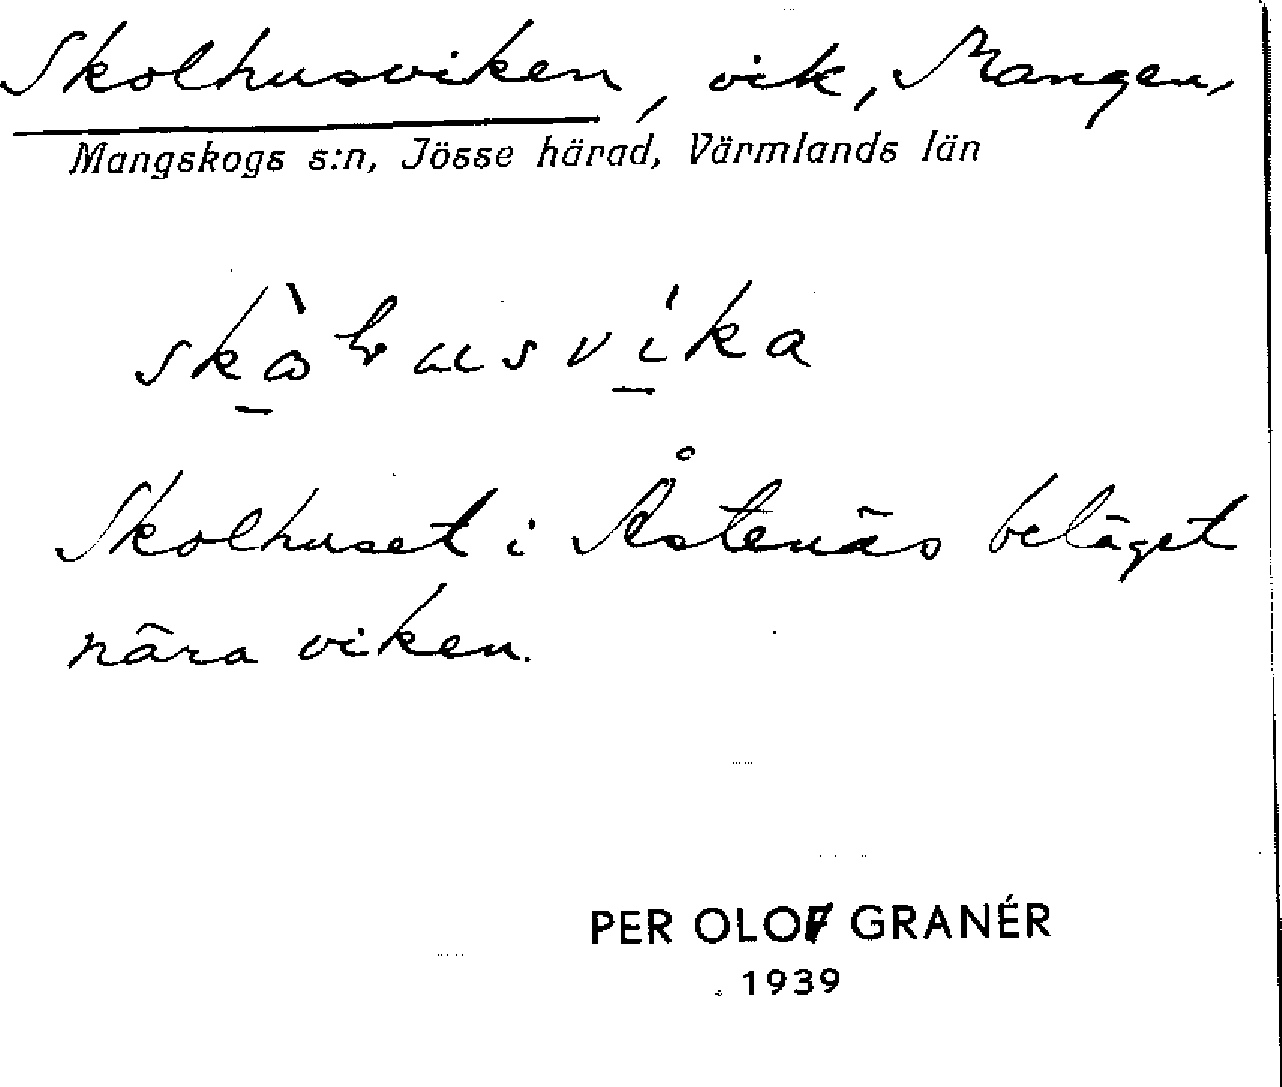 Skolhusviken, vik, Mangen,
Mangskogs s:n, Jösse härad, Värmlands län
Skolhuset i Åstenäs beläget
nära viken.
PER OLOF GRANÉR
1939